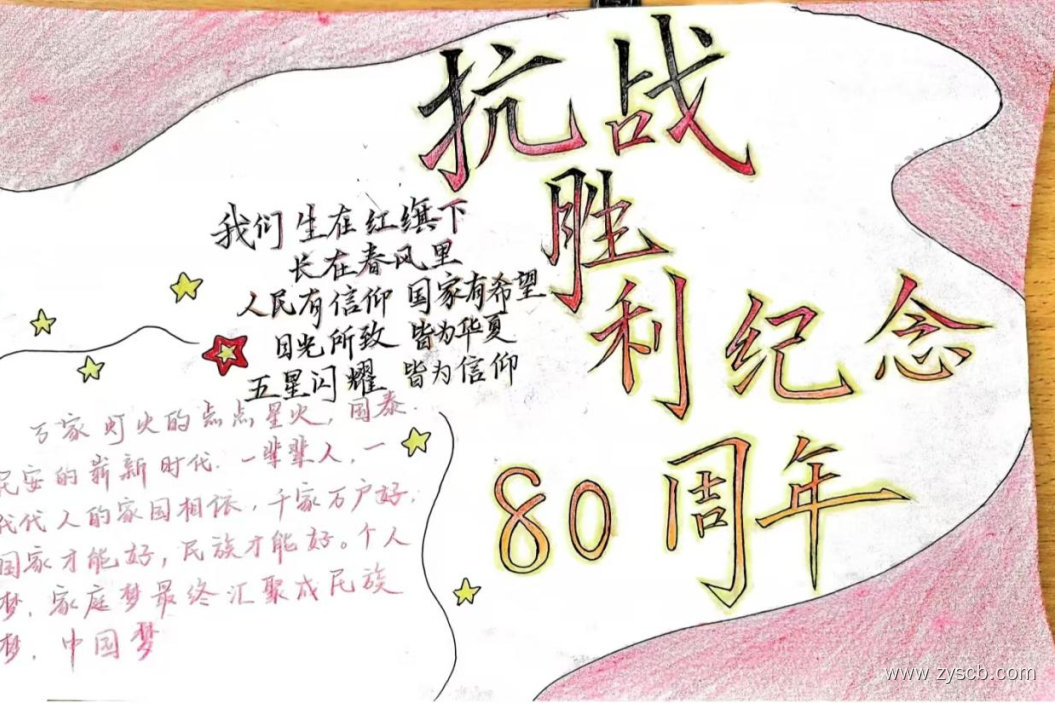 抗战
胜
利纪念
80周年
我们生在红旗下
长在春风里
人民有信仰 国家有希望
目光所致 皆为华夏
五星闪耀 皆为信仰
万家灯火的点点星火，国泰
民安的崭新时代．一辈辈人，一
代代人的家国相依，千家万户好，
国家才能好，民族才能好。个人
梦．家庭梦最终汇聚成民族
梦．中国梦
www.zyscb.com